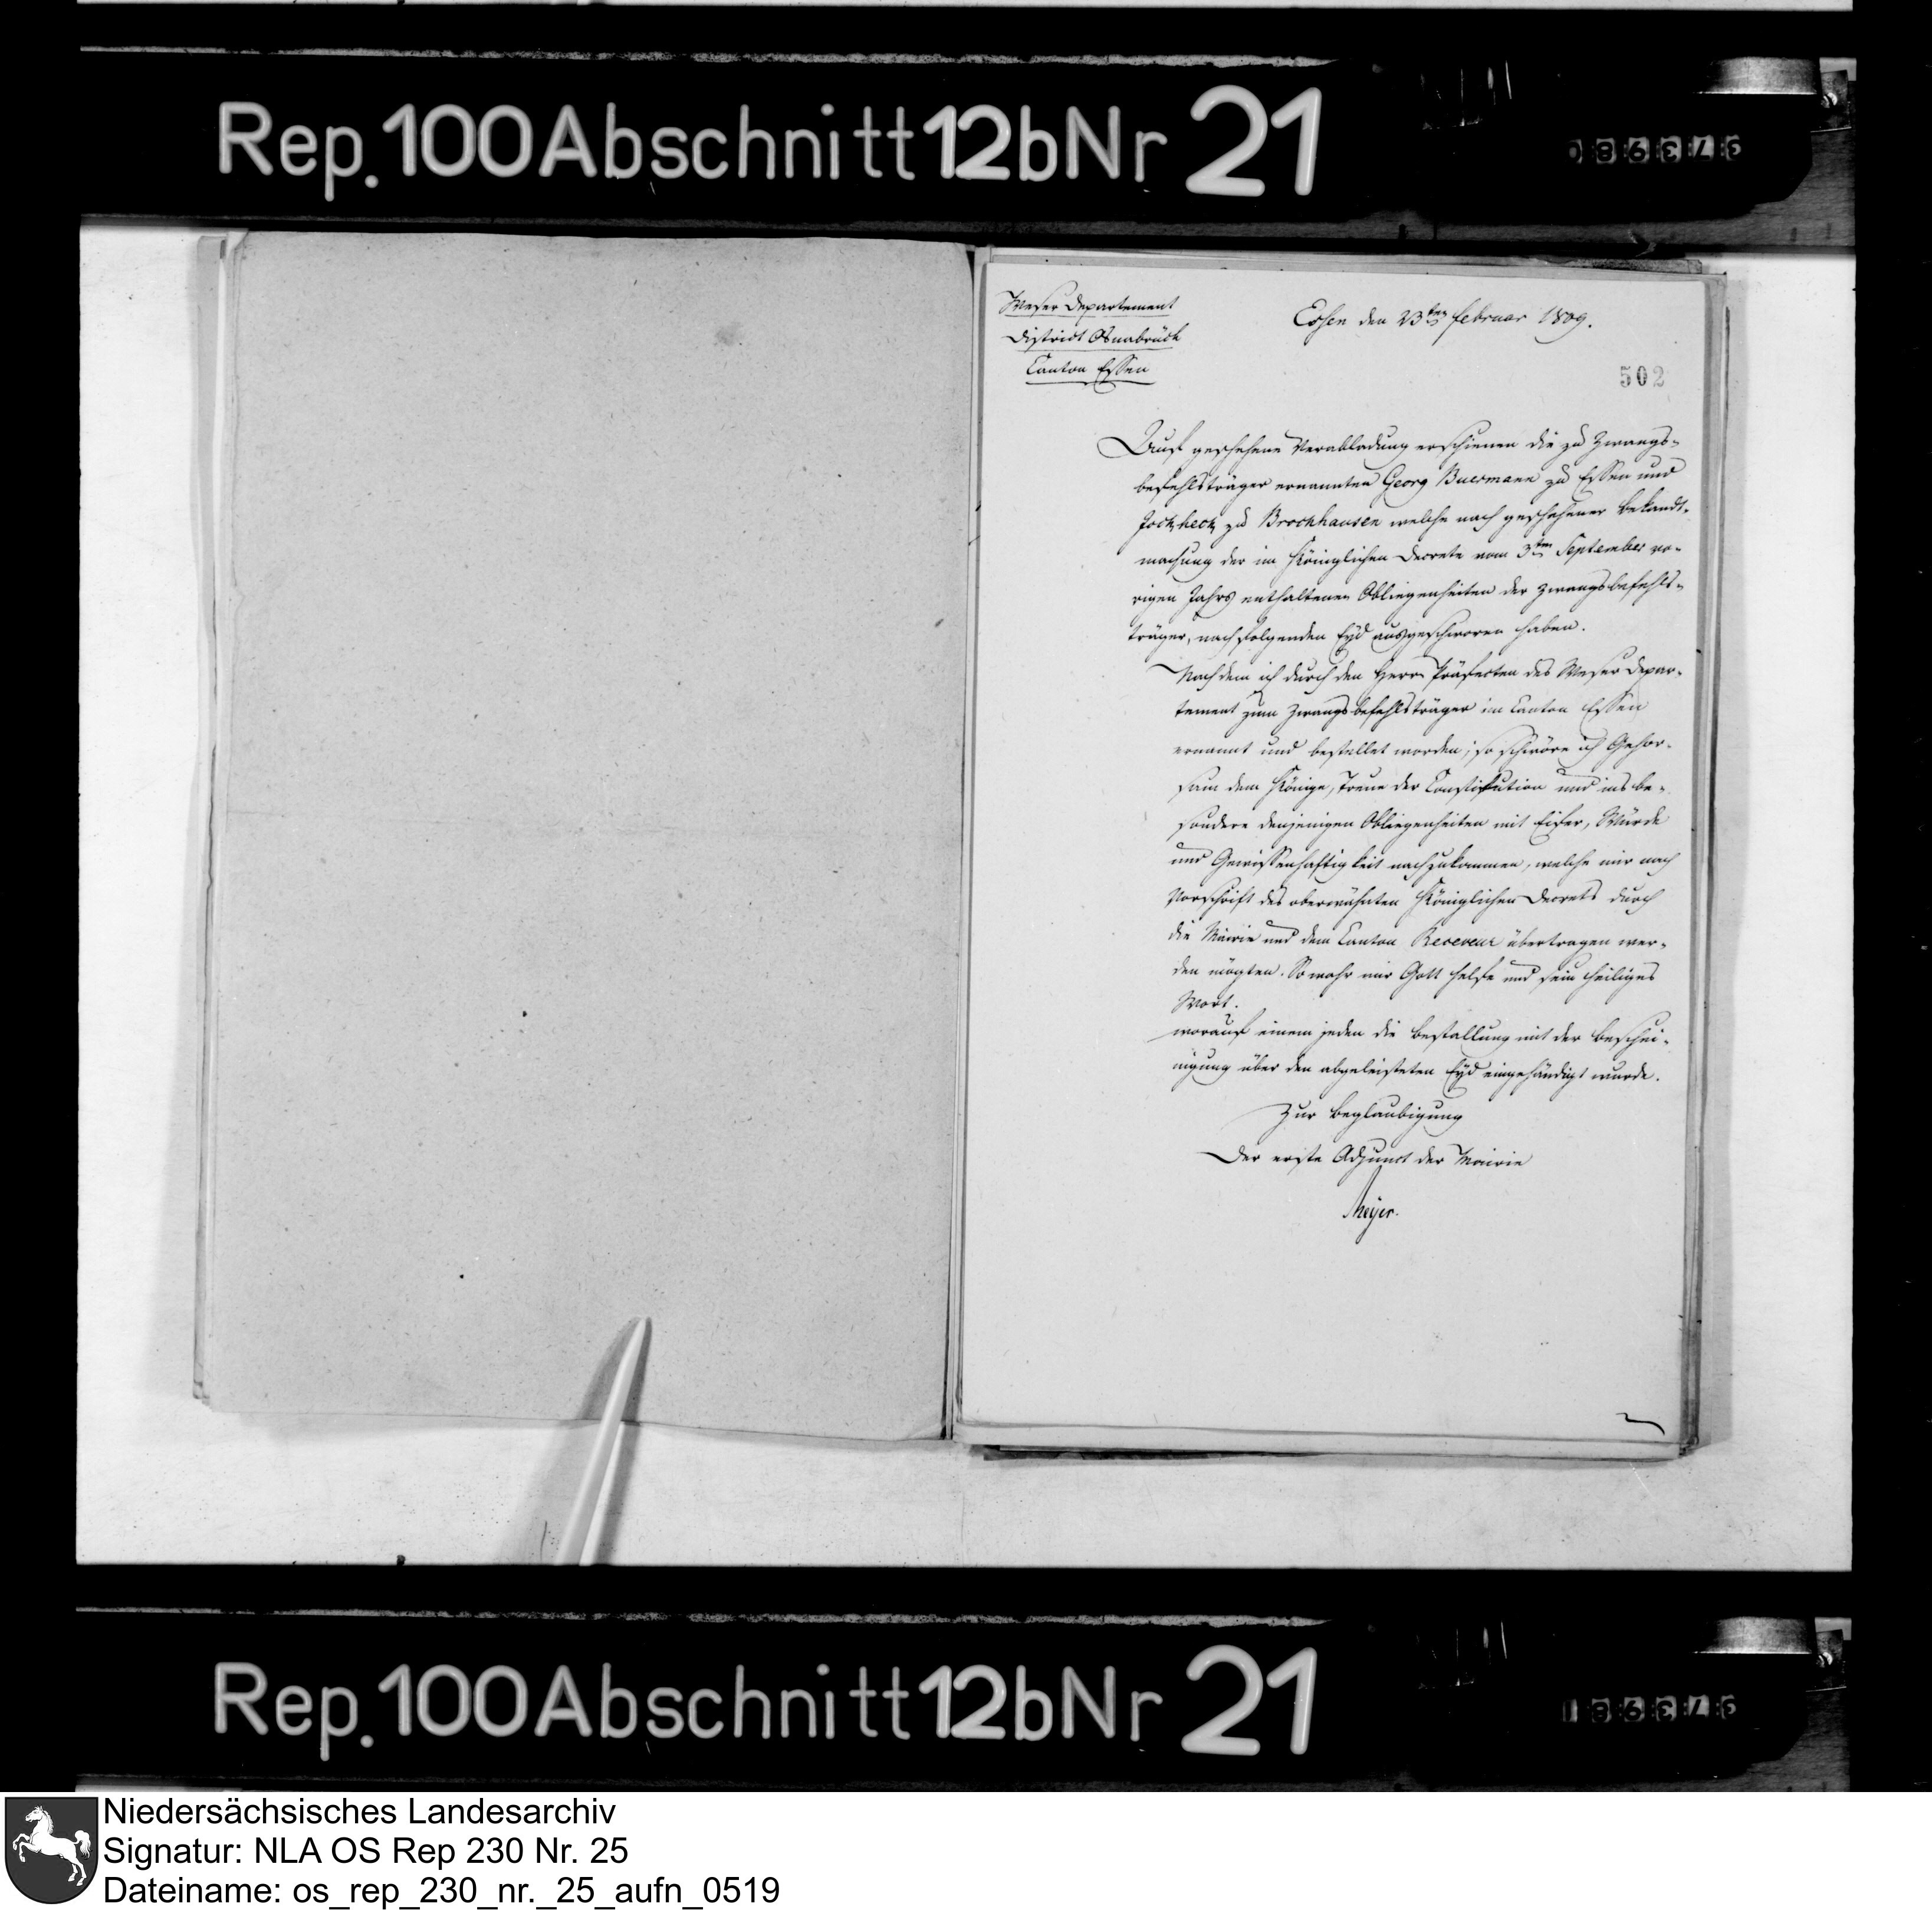 Rep. 100 Abschnitt 12b Nr 21
Weser Departement
District Osnabrück
Canton Essen
Essen den 23ten Februar 1809.
502
Auf geschehene Verabladung erschienen die zu Zwangs-
befehlsträger ernannten Georg Buermann zu Essen und
Jockheck zu Brockhausen welche nach geschehener Bekandt-
machung der im Königlichen Decrete vom 3ten September vo-
rigen Jahrs enthaltenen Obliegenheiten der Zwangsbefehls-
träger, nachfolgenden Eyd ausgeschworen haben.
Nachdem ich durch den Herrn Präfecten des Weser Depar-
tement zum Zwangsbefehlsträger im Canton Essen
ernannt und bestellet worden; so schwöre ich Gehor-
sam dem Könige, Treue der Constitution und ins be-
sondere denjenigen Obliegenheiten mit Eifer, Würde
und Gewissenhaftigkeit nachzukommen, welche mir nach
Vorschrift des oberwähnten Königlichen Decrets durch
die Mairie und dem Canton Receveur übertragen wer-
den mögten. So wahr mir Gott helfe und sein heiliges
Wort.
worauf einem jeden die Bestallung mit der Beschei-
nigung über den abgeleisteten Eyd eingehändigt wurde.
Zur Beglaubigung
Der erste Adjunct der Mairie
Meyer.
Rep. 100 Abschnitt 12b Nr 21
Niedersächsisches Landesarchiv
Signatur: NLA OS Rep 230 Nr. 25
Dateiname: os_rep_230_nr._25_aufn_0519